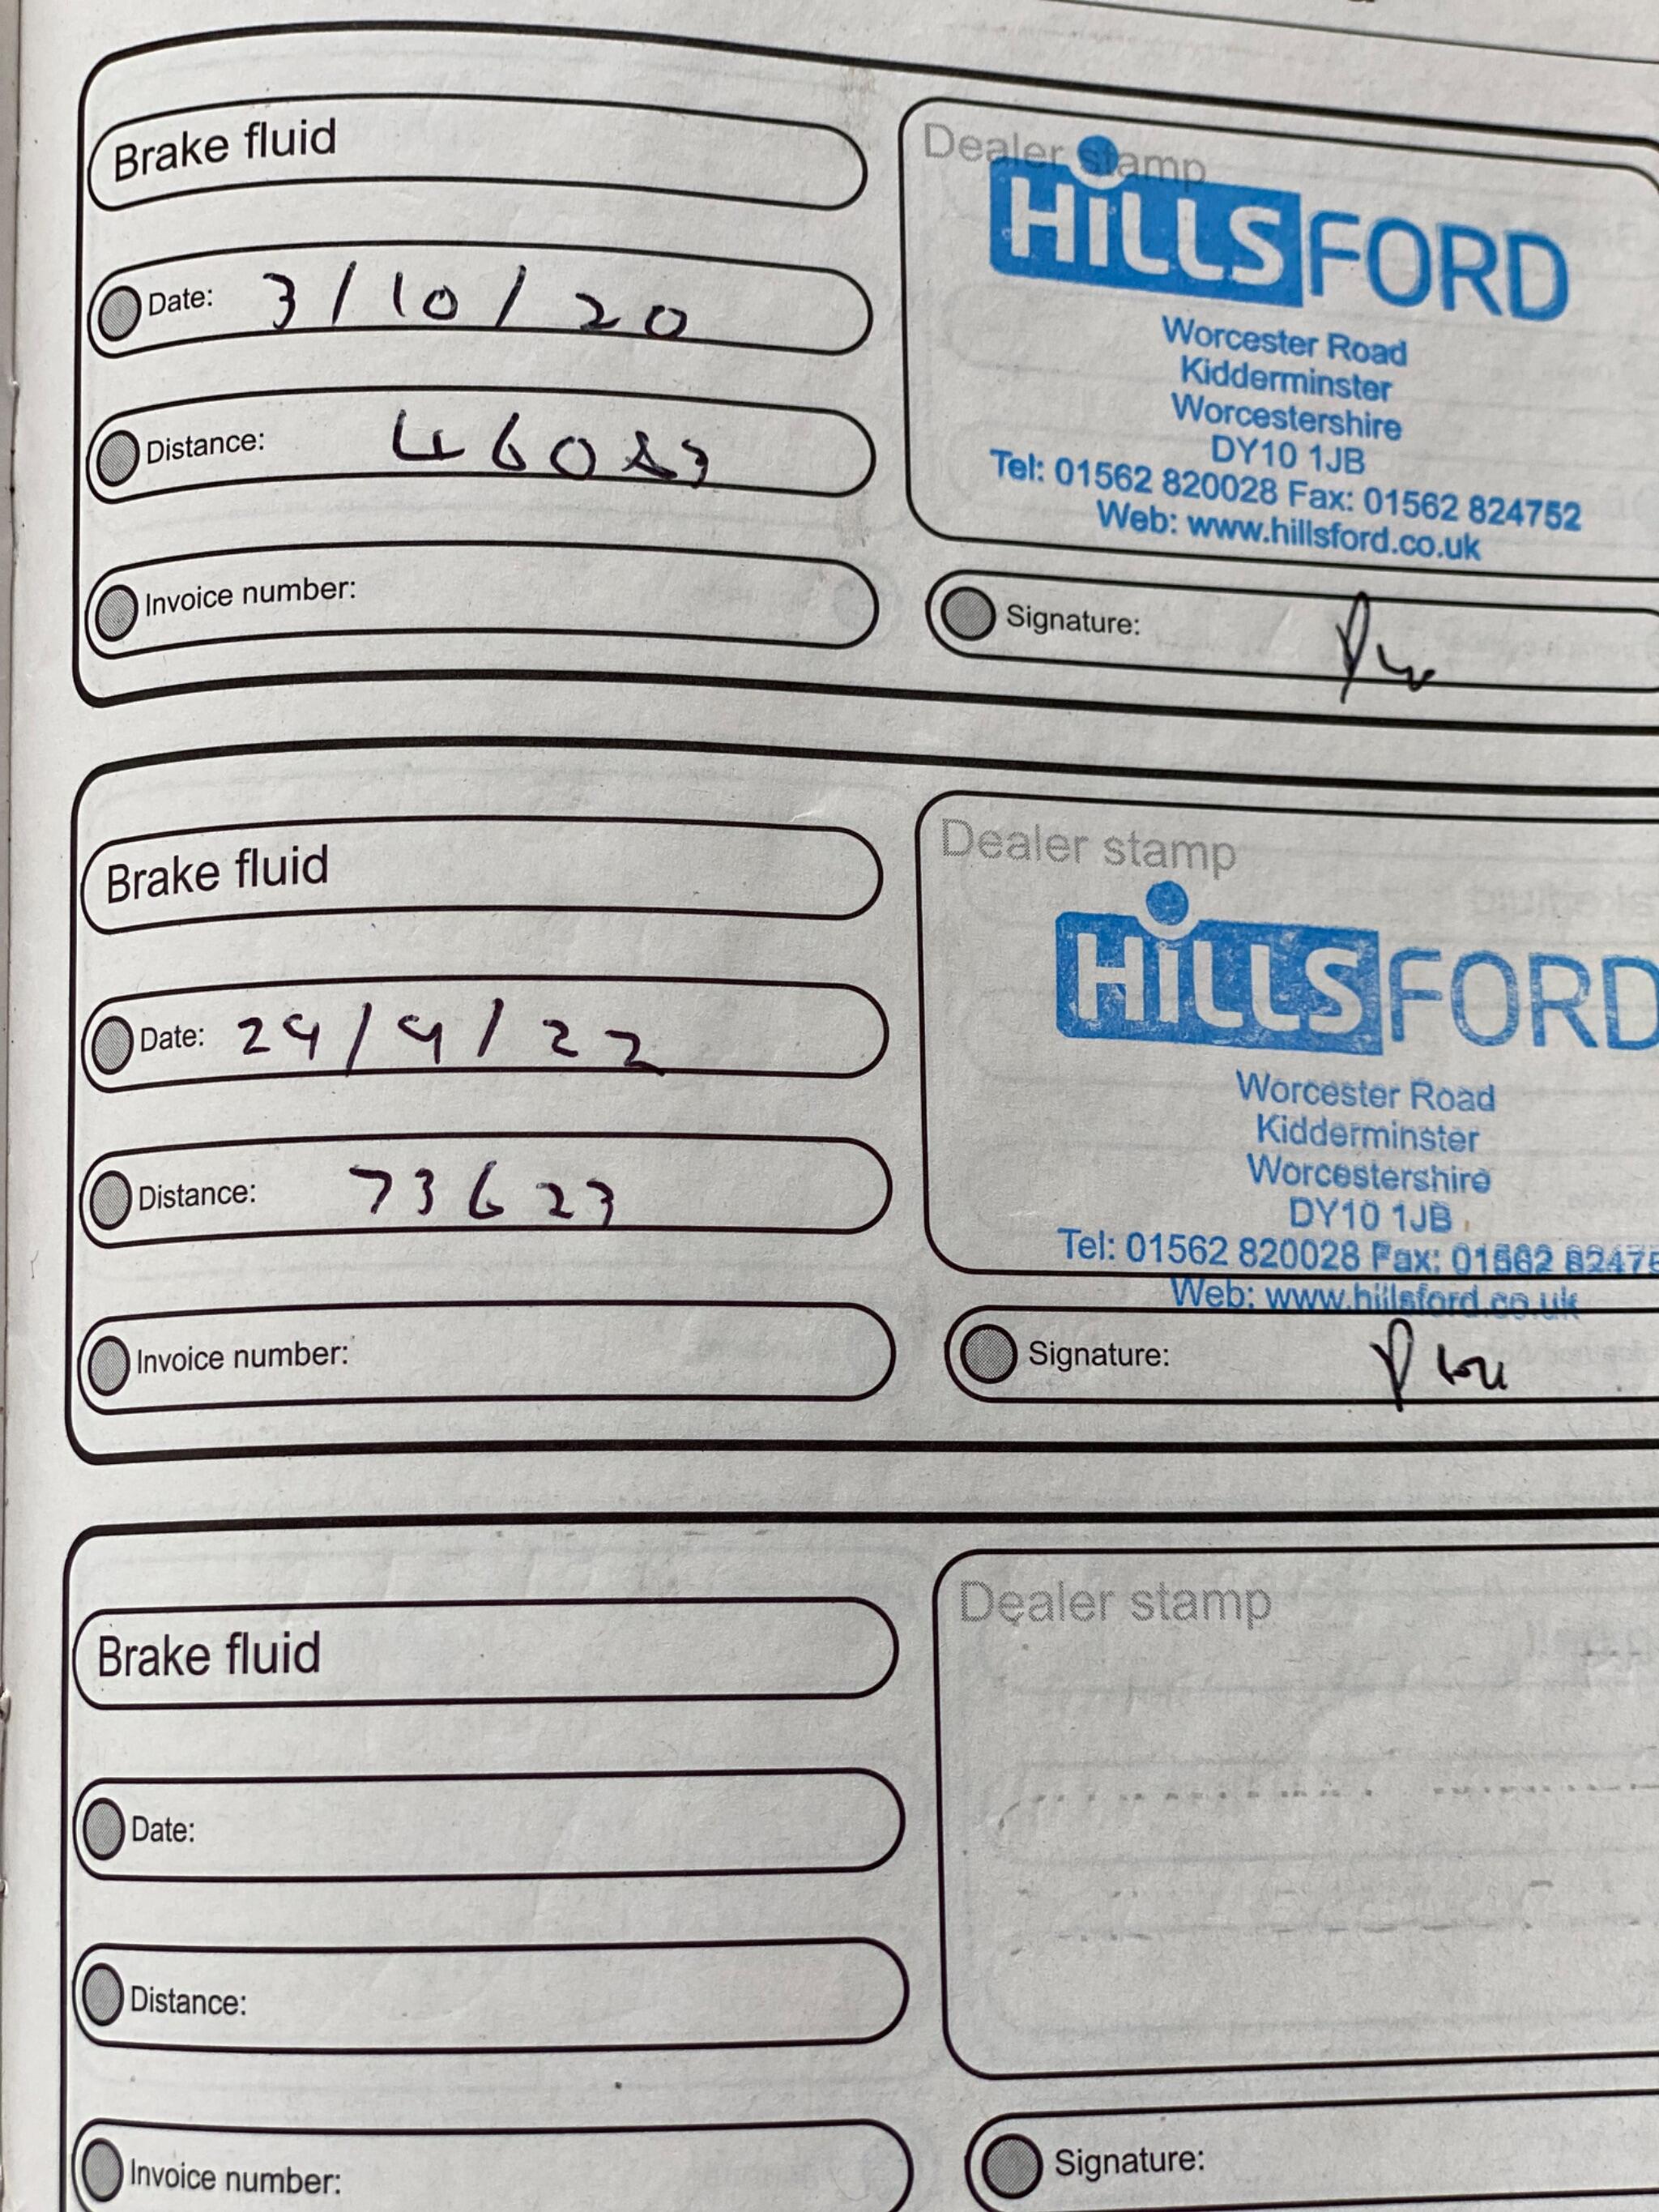 Brake fluid
Date: 3/10/20
Distance: 46083
Invoice number:
Dealer stamp
HiLLS FORD
Worcester Road
Kidderminster
Worcestershire
DY10 1JB
Tel: 01562 820028 Fax: 01562 824752
Web: www.hillsford.co.uk
Signature:
Brake fluid
Date: 29/9/22
Distance: 73623
Invoice number:
Dealer stamp
HiLLS FORD
Worcester Road
Kidderminster
Worcestershire
DY10 1JB
Tel: 01562 820028 Fax: 01562 82475
Web: www.hillsford.co.uk
Signature:
Brake fluid
Date:
Distance:
Invoice number:
Dealer stamp
Signature: